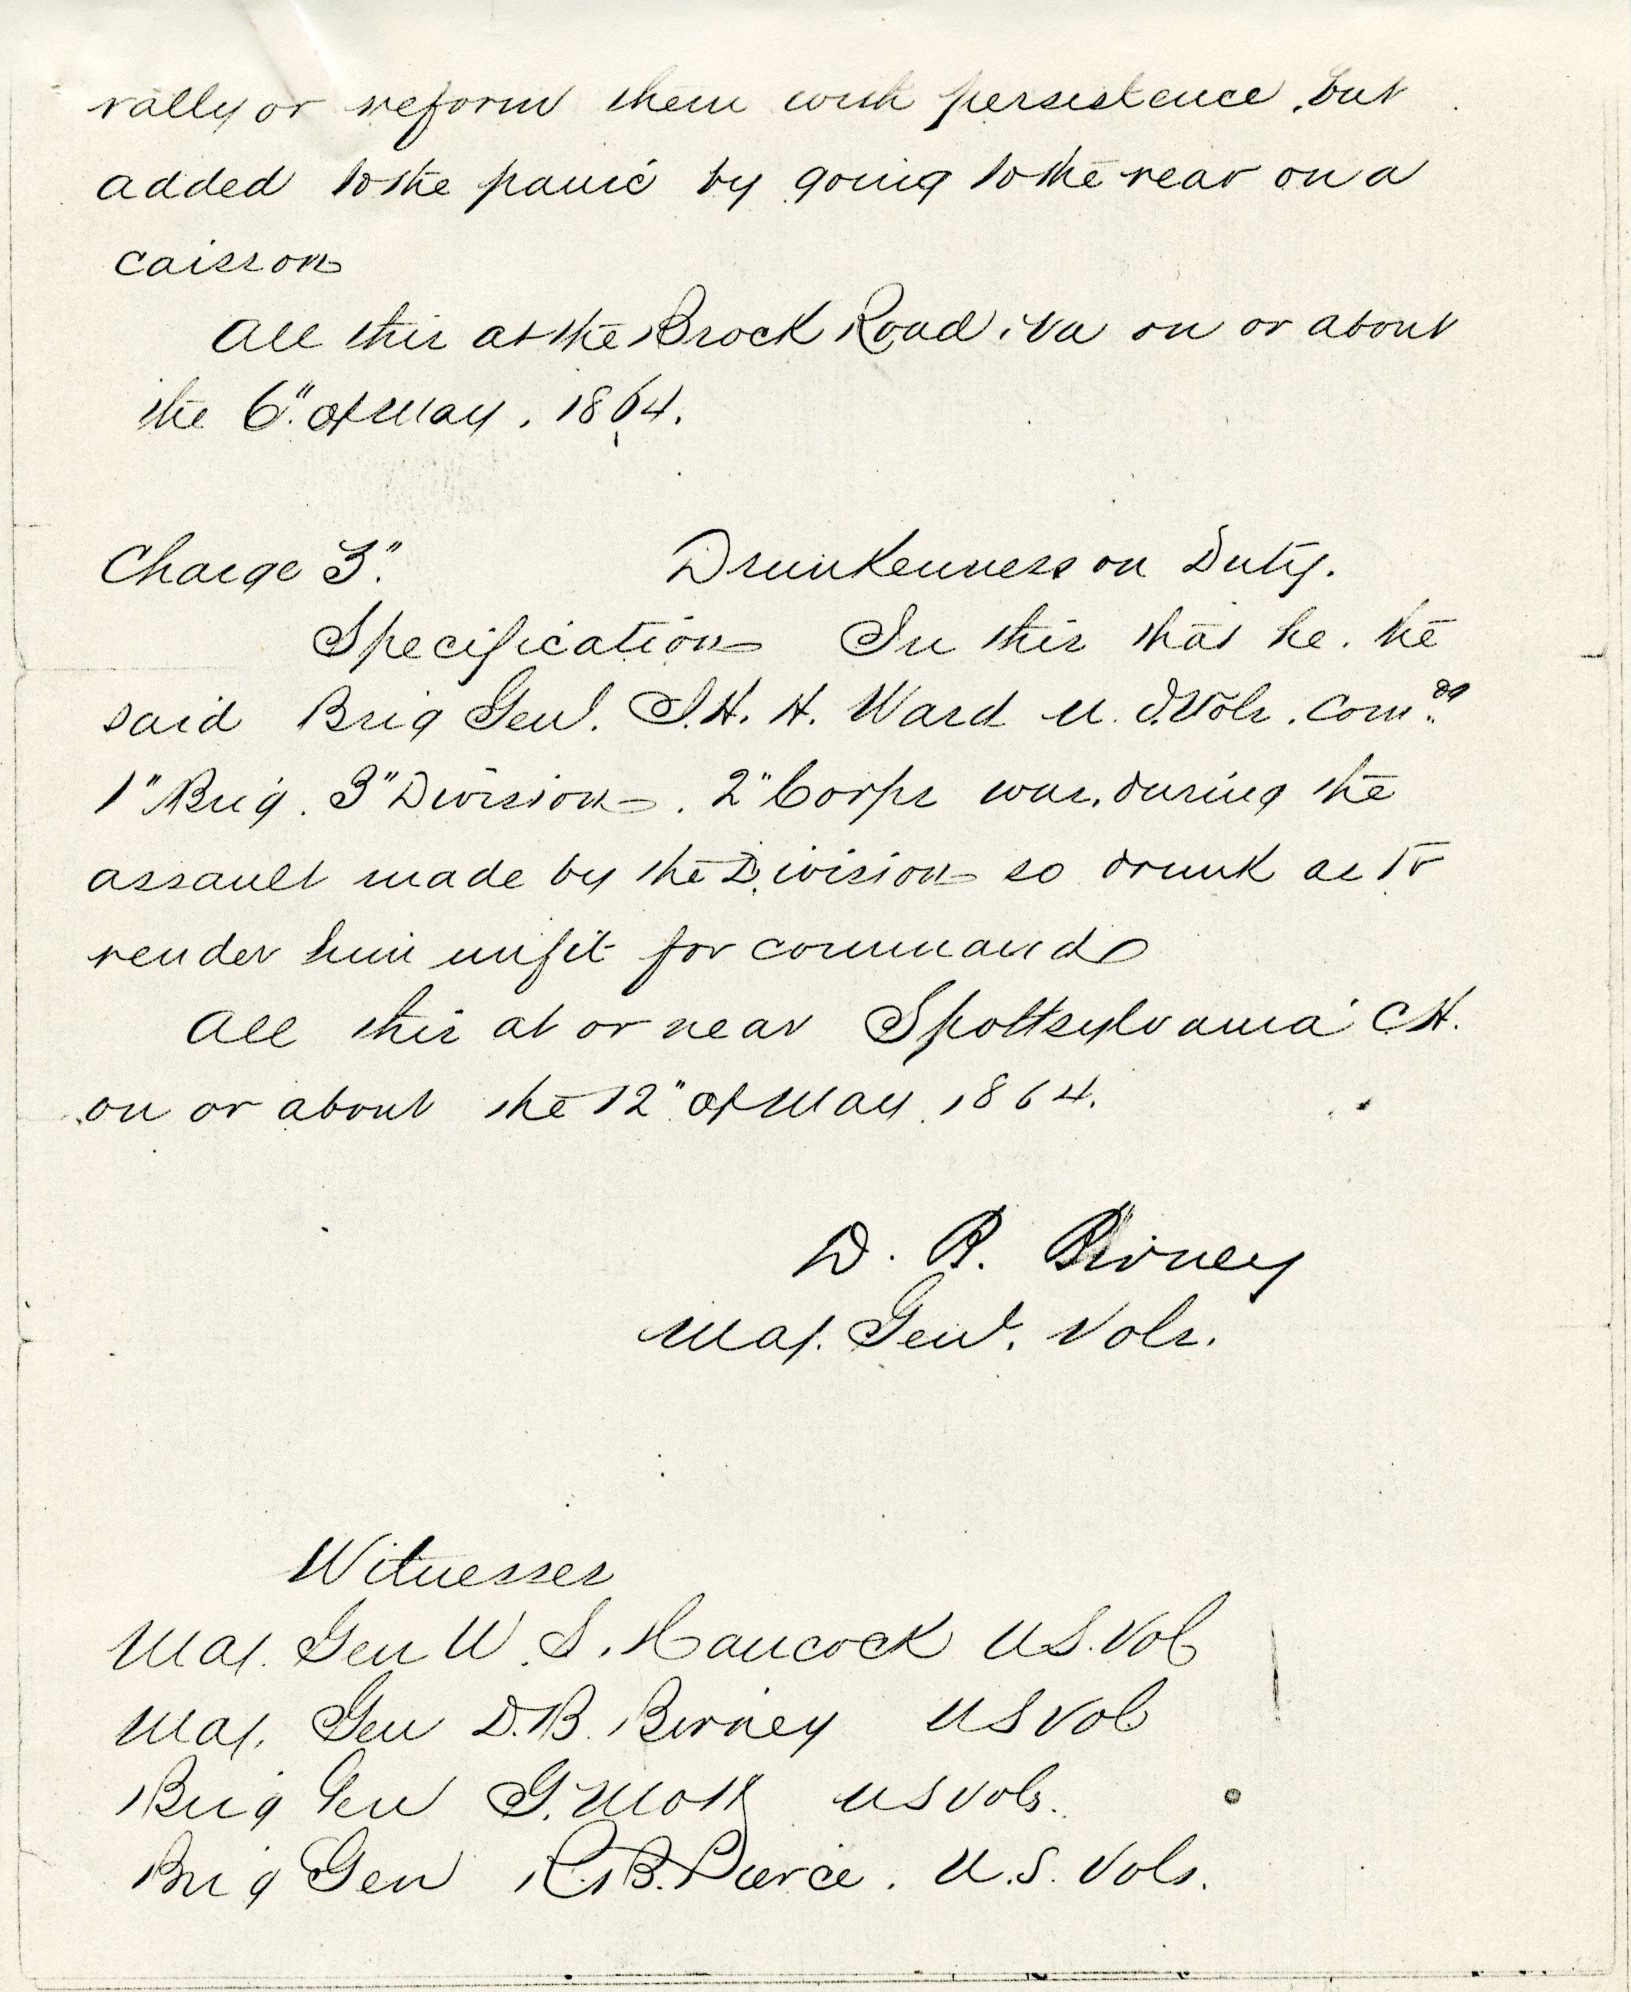 rally or reform them with persistence, but
added to the panic by going to the rear on a
caisson
All this at the Brock Road, Va on or about
the 6" of May, 1864.
Charge 3". Drunkenness on Duty.
Specification In this that he, he
said Brig Genl. J. H. H. Ward U. S. Vols. Com.dg
1" Brig. 3" Division, 2" Corps was, during the
assault made by the Division so drunk as to
render him unfit for command
All this at or near Spottsylvania C H.
on or about the 12" of May, 1864.
D. B. Birney
Maj. Genl. Vols.
Witnesses
Maj. Gen W. S. Hancock U S. Vol
Maj. Gen D. B. Birney U S Vol
Brig Gen G. Mott U S Vols.
Brig Gen R. B. Pierce. U. S. Vols.